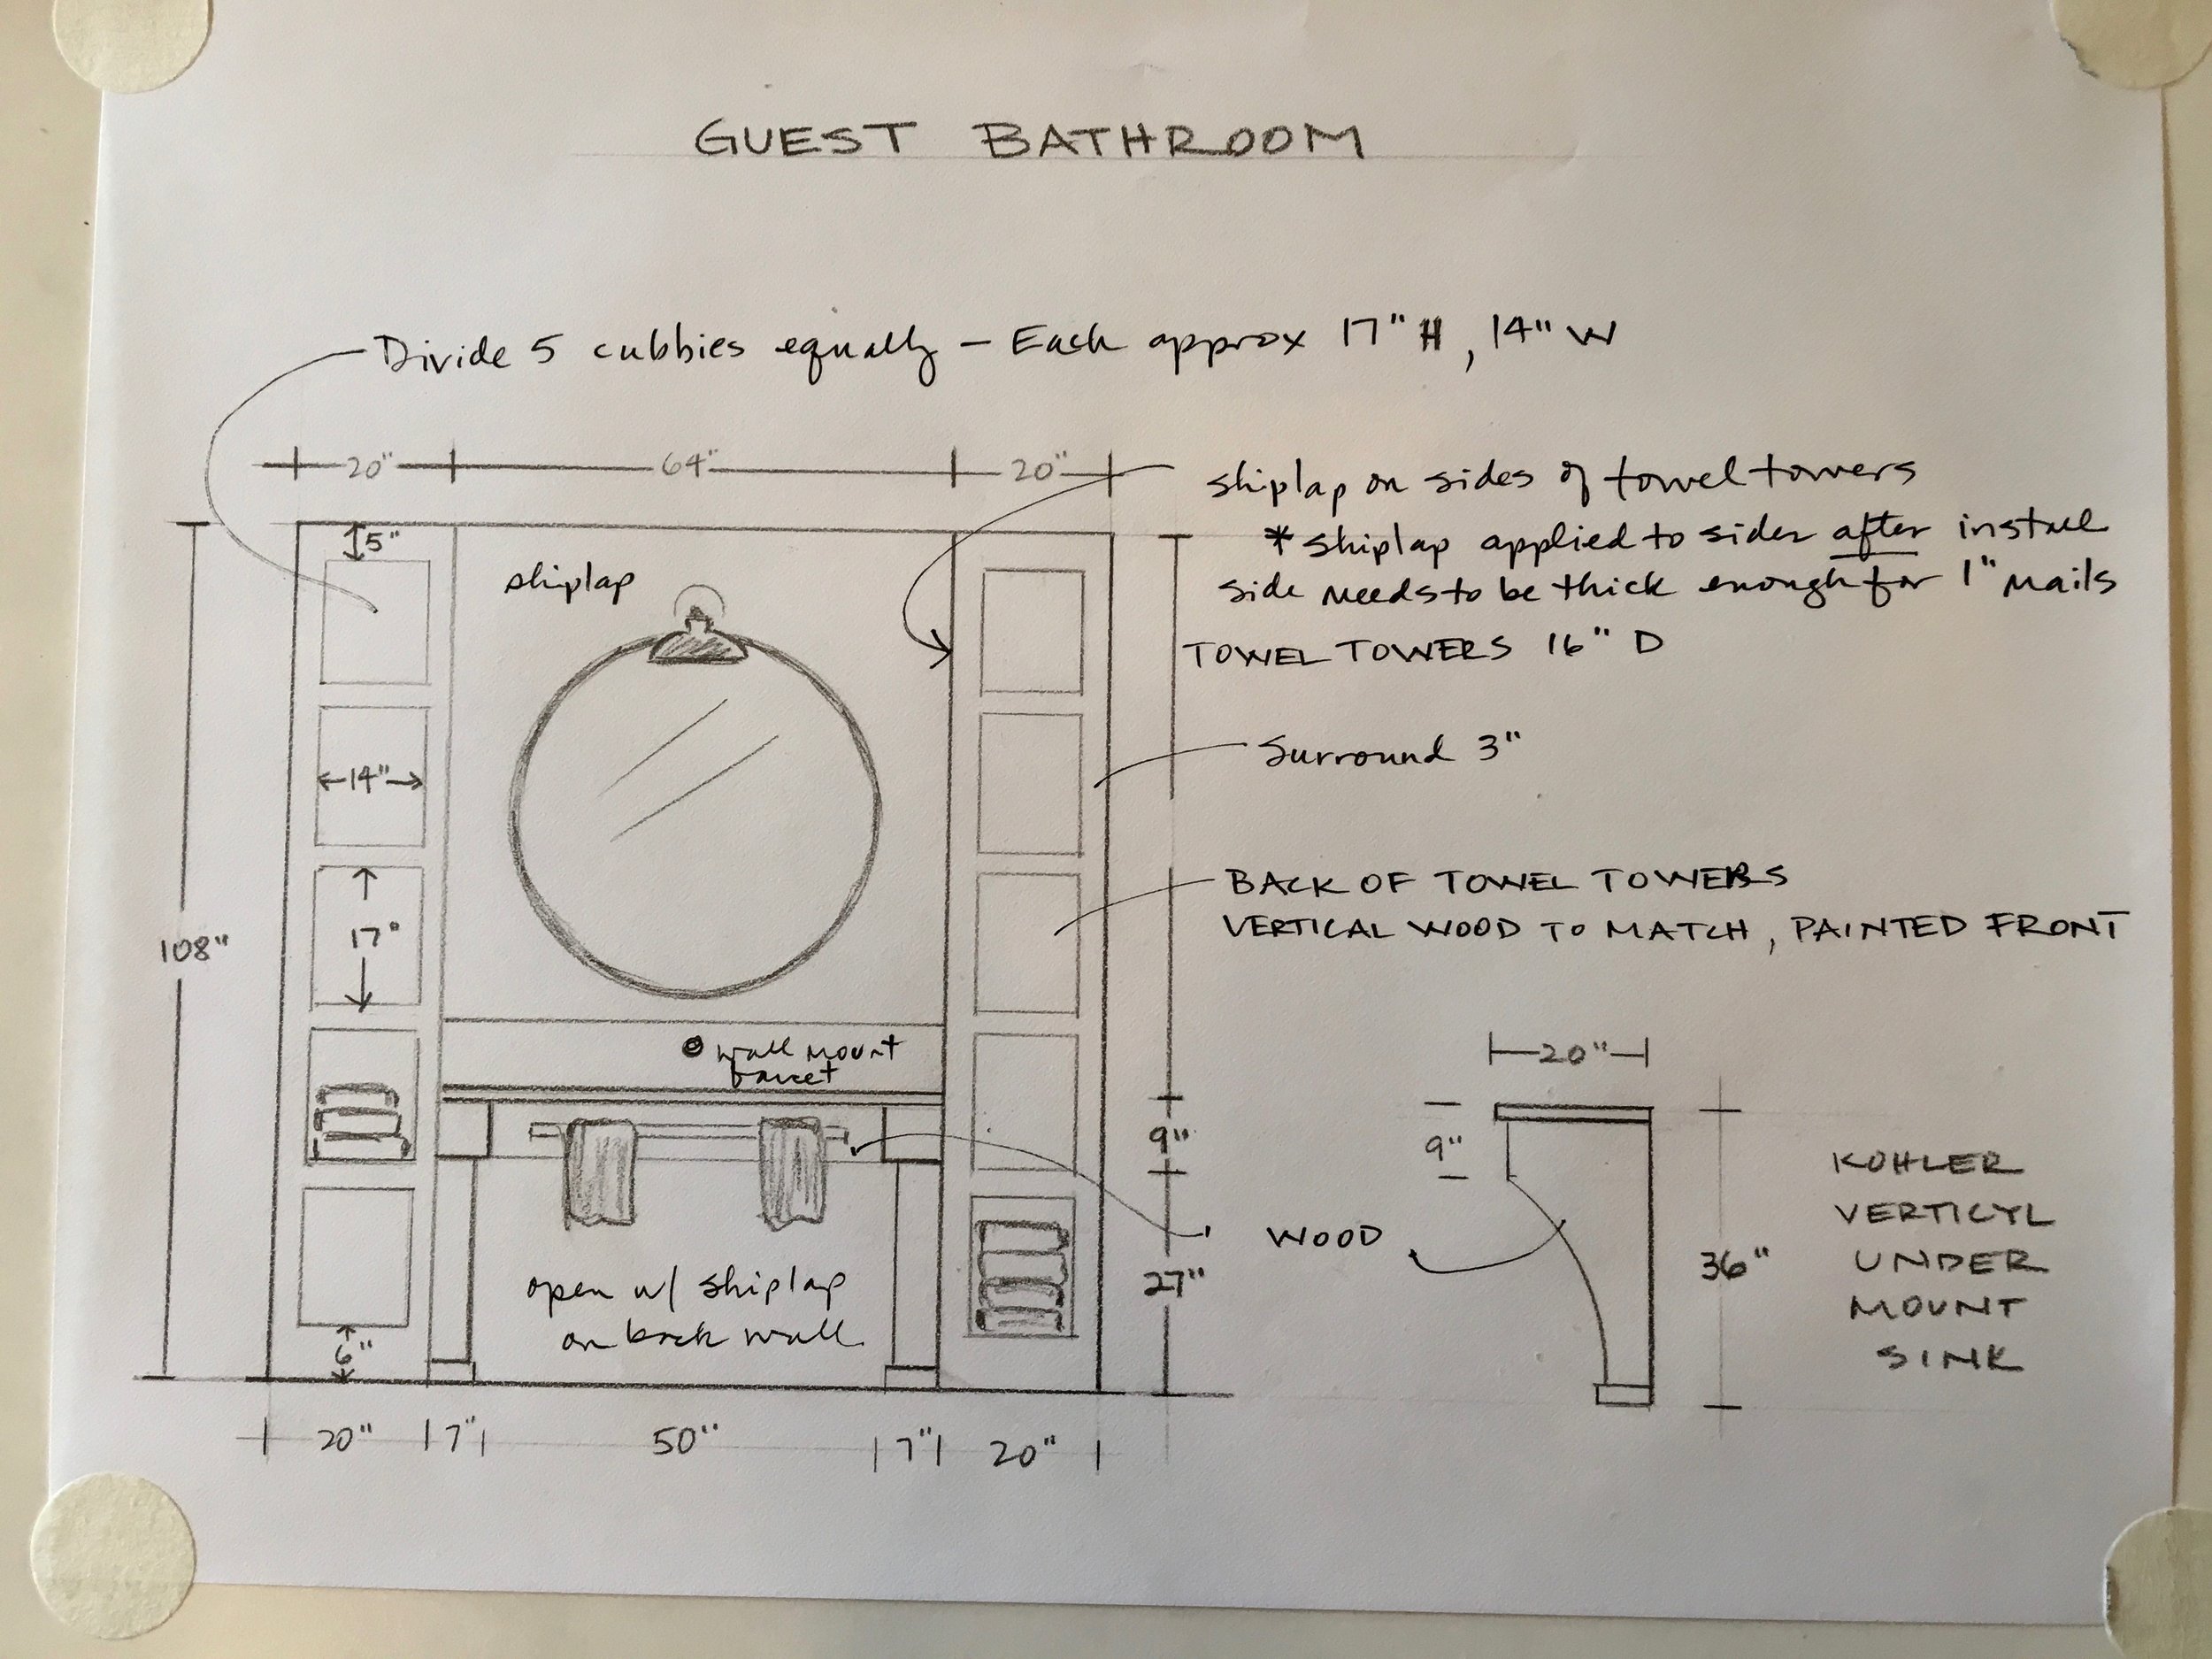 GUEST BATHROOM
Divide 5 cubbies equally - Each approx 17" H, 14" W
20"
64"
20"
shiplap on sides of towel towers
* shiplap applied to sides after install
side needs to be thick enough for 1" nails
TOWEL TOWERS 16" D
5"
shiplap
14"
Surround 3"
17"
108"
BACK OF TOWEL TOWERS
VERTICAL WOOD TO MATCH, PAINTED FRONT
wall mount
faucet
20"
9"
9"
KOHLER
VERTICYL
UNDER
MOUNT
SINK
WOOD
36"
27"
open w/ shiplap
on back wall
6"
20"
7"
50"
7"
20"